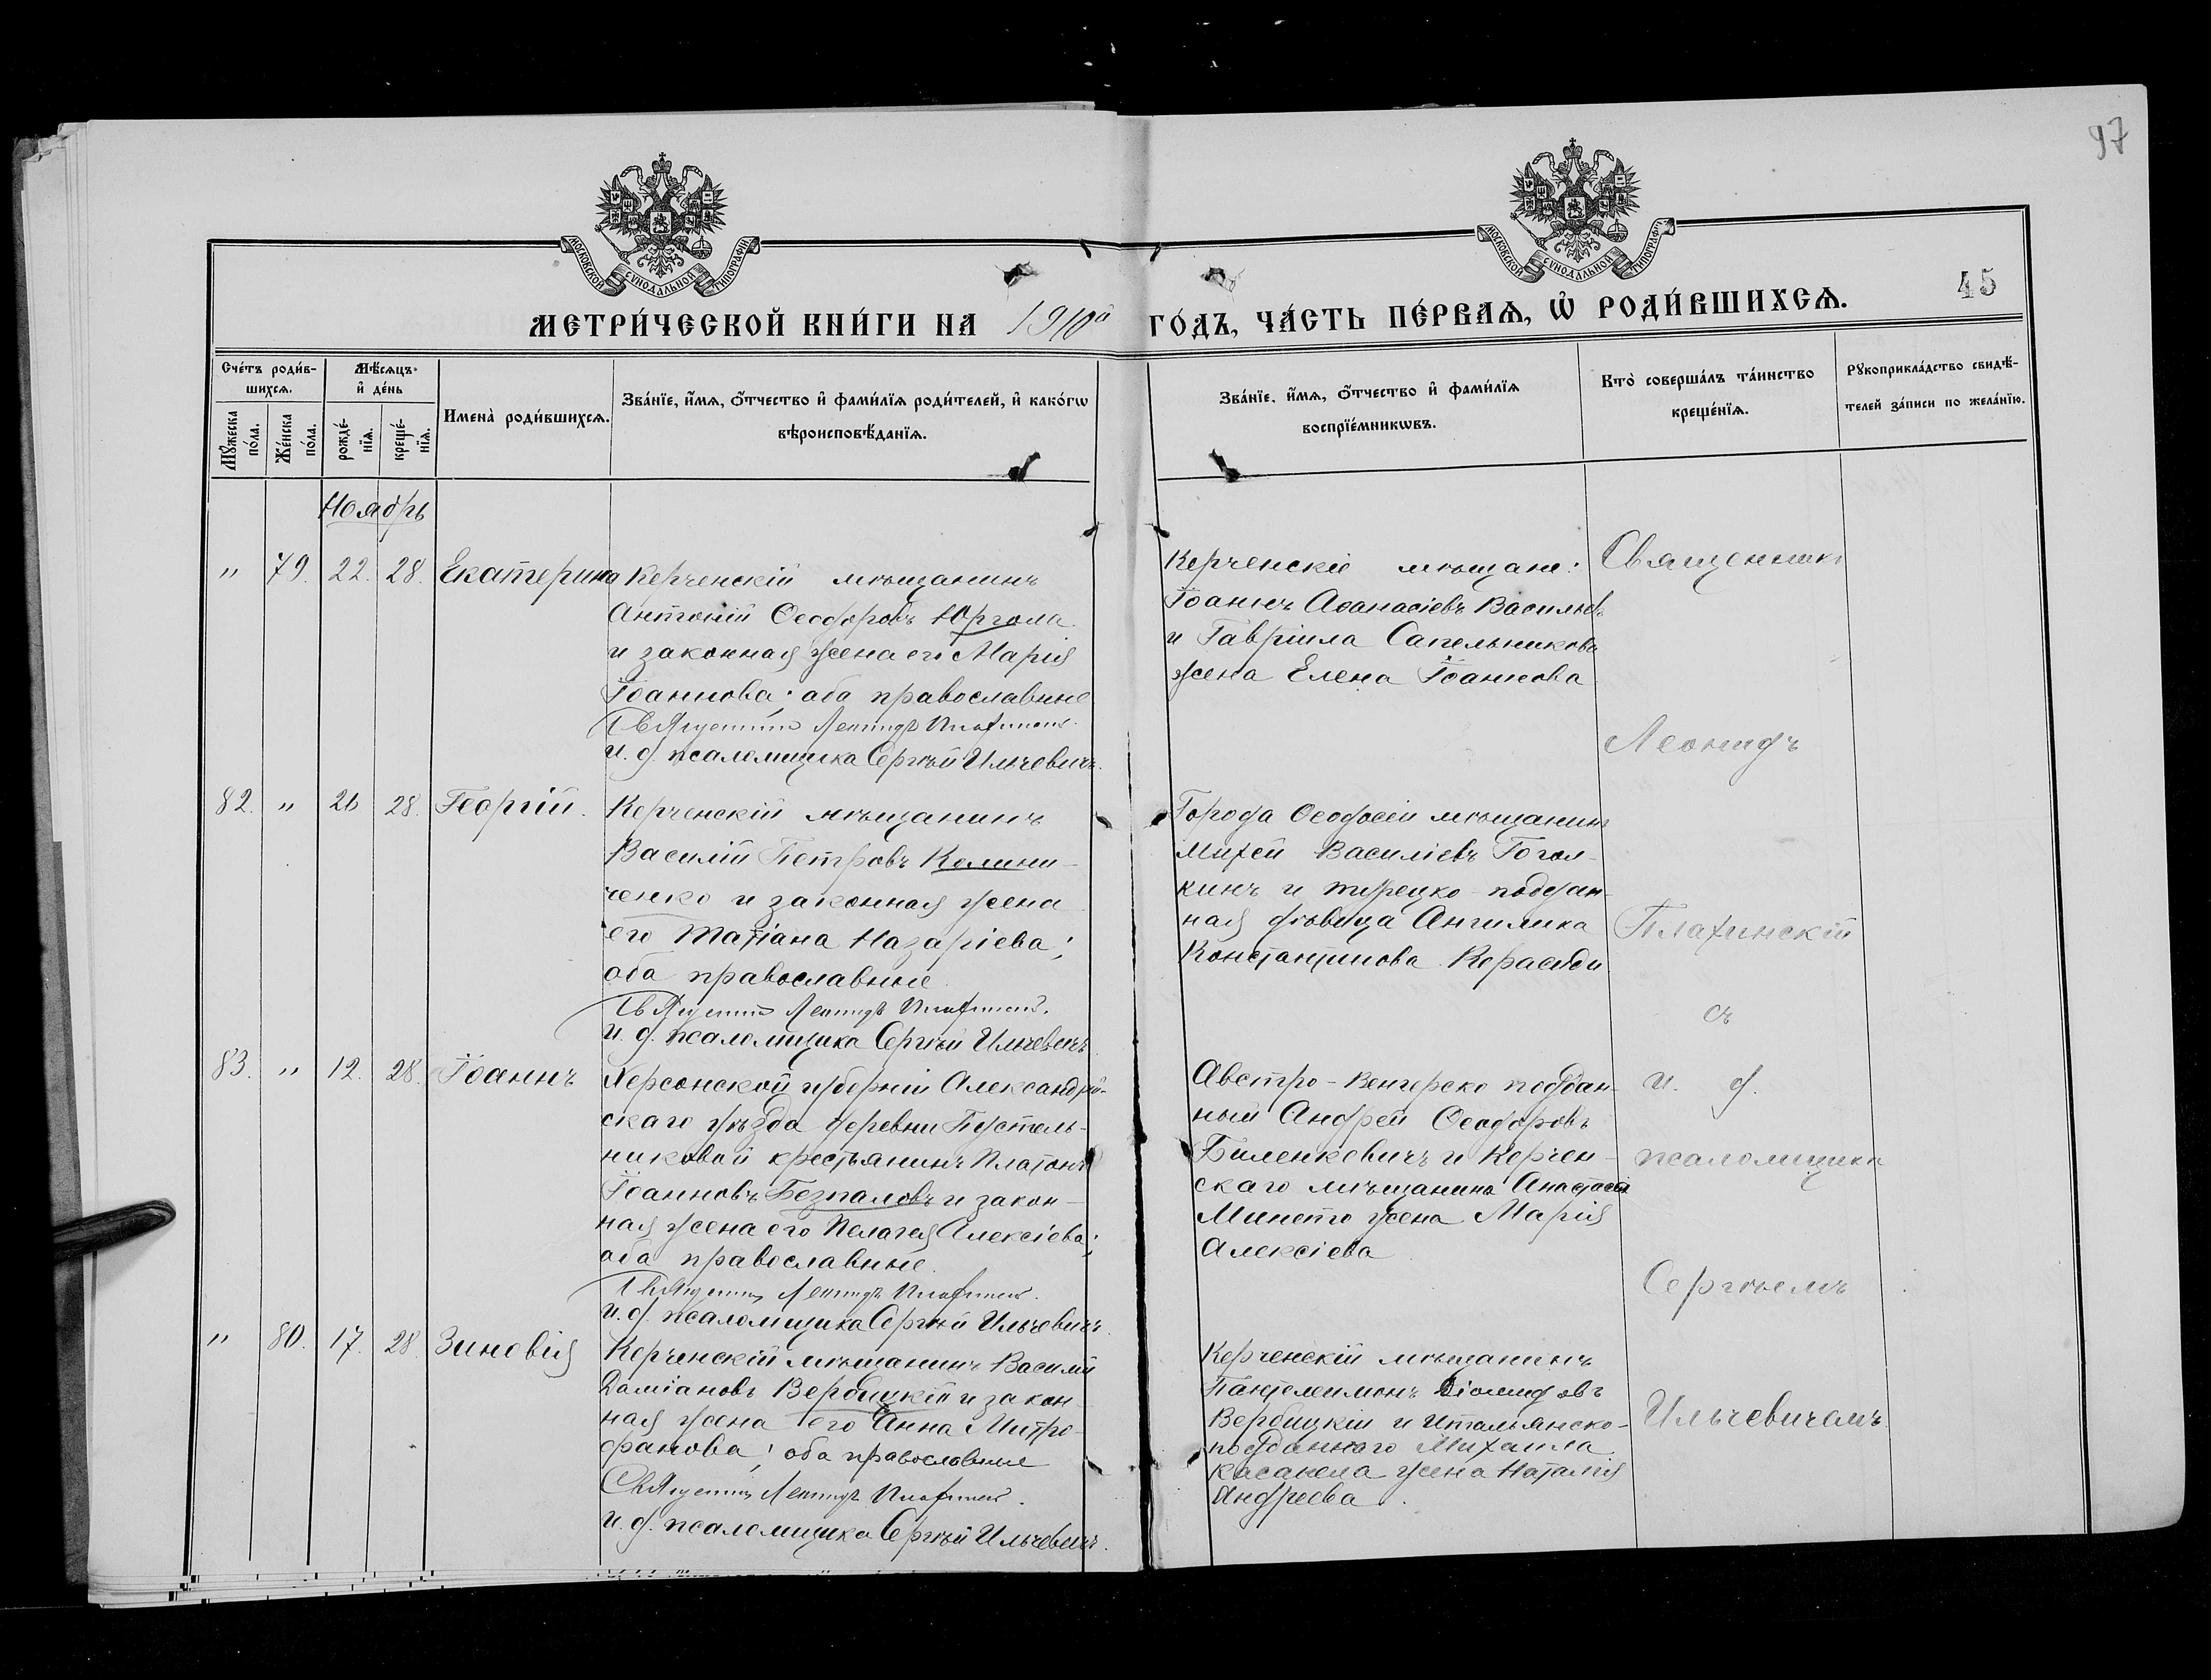 97
МОСКОВСКОЙ СѴНОДАЛЬНОЙ ТИПОГРАФІИ
МОСКОВСКОЙ СѴНОДАЛЬНОЙ ТИПОГРАФІИ
45
МЕТРИ́ЧЕСКОЙ КНИ́ГИ НА 1910й ГО́ДЪ, ЧА́СТЬ ПЕ́РВАѦ, Ѽ РОДИ́ВШИХСѦ.
Сче́тъ роди́в-
шихсѧ.
Мѣ́сѧцъ
и҆ де́нь
Мꙋ́жеска
по́ла.
Же́нска
по́ла.
рожде́-
нїѧ.
креще́-
нїѧ.
Имена̀ роди́вшихсѧ.
Зва́нїе, и҆́мѧ, ѻ҆́тчество и҆ фами́лїѧ роди́телей, и҆ како́гѡ
вѣроисповѣ́данїѧ.
Зва́нїе, и҆́мѧ, ѻ҆́тчество и҆ фами́лїѧ
воспрїе́мникѡвъ.
Кто̀ соверша́лъ та́инство
креще́нїѧ.
Рꙋкоприкла́дство свидѣ́-
телей за́писи по жела́нїю.
Ноябрь
" 79. 22. 28. Екатерина
Керченскій мѣщанинъ
Антоній Ѳеодоровъ Юргола
и законная жена его Марія
Іоаннова; оба православные
Священникъ Леонидъ Плахинскій.
и. д. псаломщика Сергѣй Ильчевичъ.
Керченскіе мѣщане:
Іоаннъ Аѳанасіевъ Васильевъ
и Гавріила Сапельникова
жена Елена Іоаннова
Священникъ
Леонидъ
82. " 26 28. Георгій.
Керченскій мѣщанинъ
Василій Петровъ Калини-
ченко и законная жена
его Татіана Назаріева;
оба православные
Священникъ Леонидъ Плахинскій.
и. д. псаломщика Сергѣй Ильчевичъ
Города Ѳеодосіи мѣщанинъ
Михей Василіевъ Гогол-
кинъ и турецко-поддан-
ная дѣвица Ангилика
Константинова
Плахинскій
съ
83. " 12. 28. Іоаннъ
Херсонской губерніи Александрій-
скаго уѣзда деревни Пустель-
никовой крестьянинъ Платонъ
Іоанновъ Безпаловъ и закон-
ная жена его Пелагея Алексіева;
оба православные.
Священникъ Леонидъ Плахинскій.
и. д. псаломщика Сергѣй Ильчевичъ.
Австро-Венгерско поддан-
ный Андрей Ѳеодоровъ
Биленкевичъ и Керчен-
скаго мѣщанина Анастасія
Минето жена Марія
Алексіева
и. д.
псаломщика
Сергѣемъ
" 80. 17. 28 Зиновія
Керченскій мѣщанинъ Василій
Даміановъ Вербицкій и закон
ная жена его Анна Митро-
фанова; оба православные
Священникъ Леонидъ Плахинскій.
и. д. псаломщика Сергѣй Ильчевичъ.
Керченскій мѣщанинъ
Пантелеимонъ Діомидовъ
Вербицкій и Итальянско-
подданнаго Михаила
Касанела жена Наталія
Андреева.
Ильчевичемъ